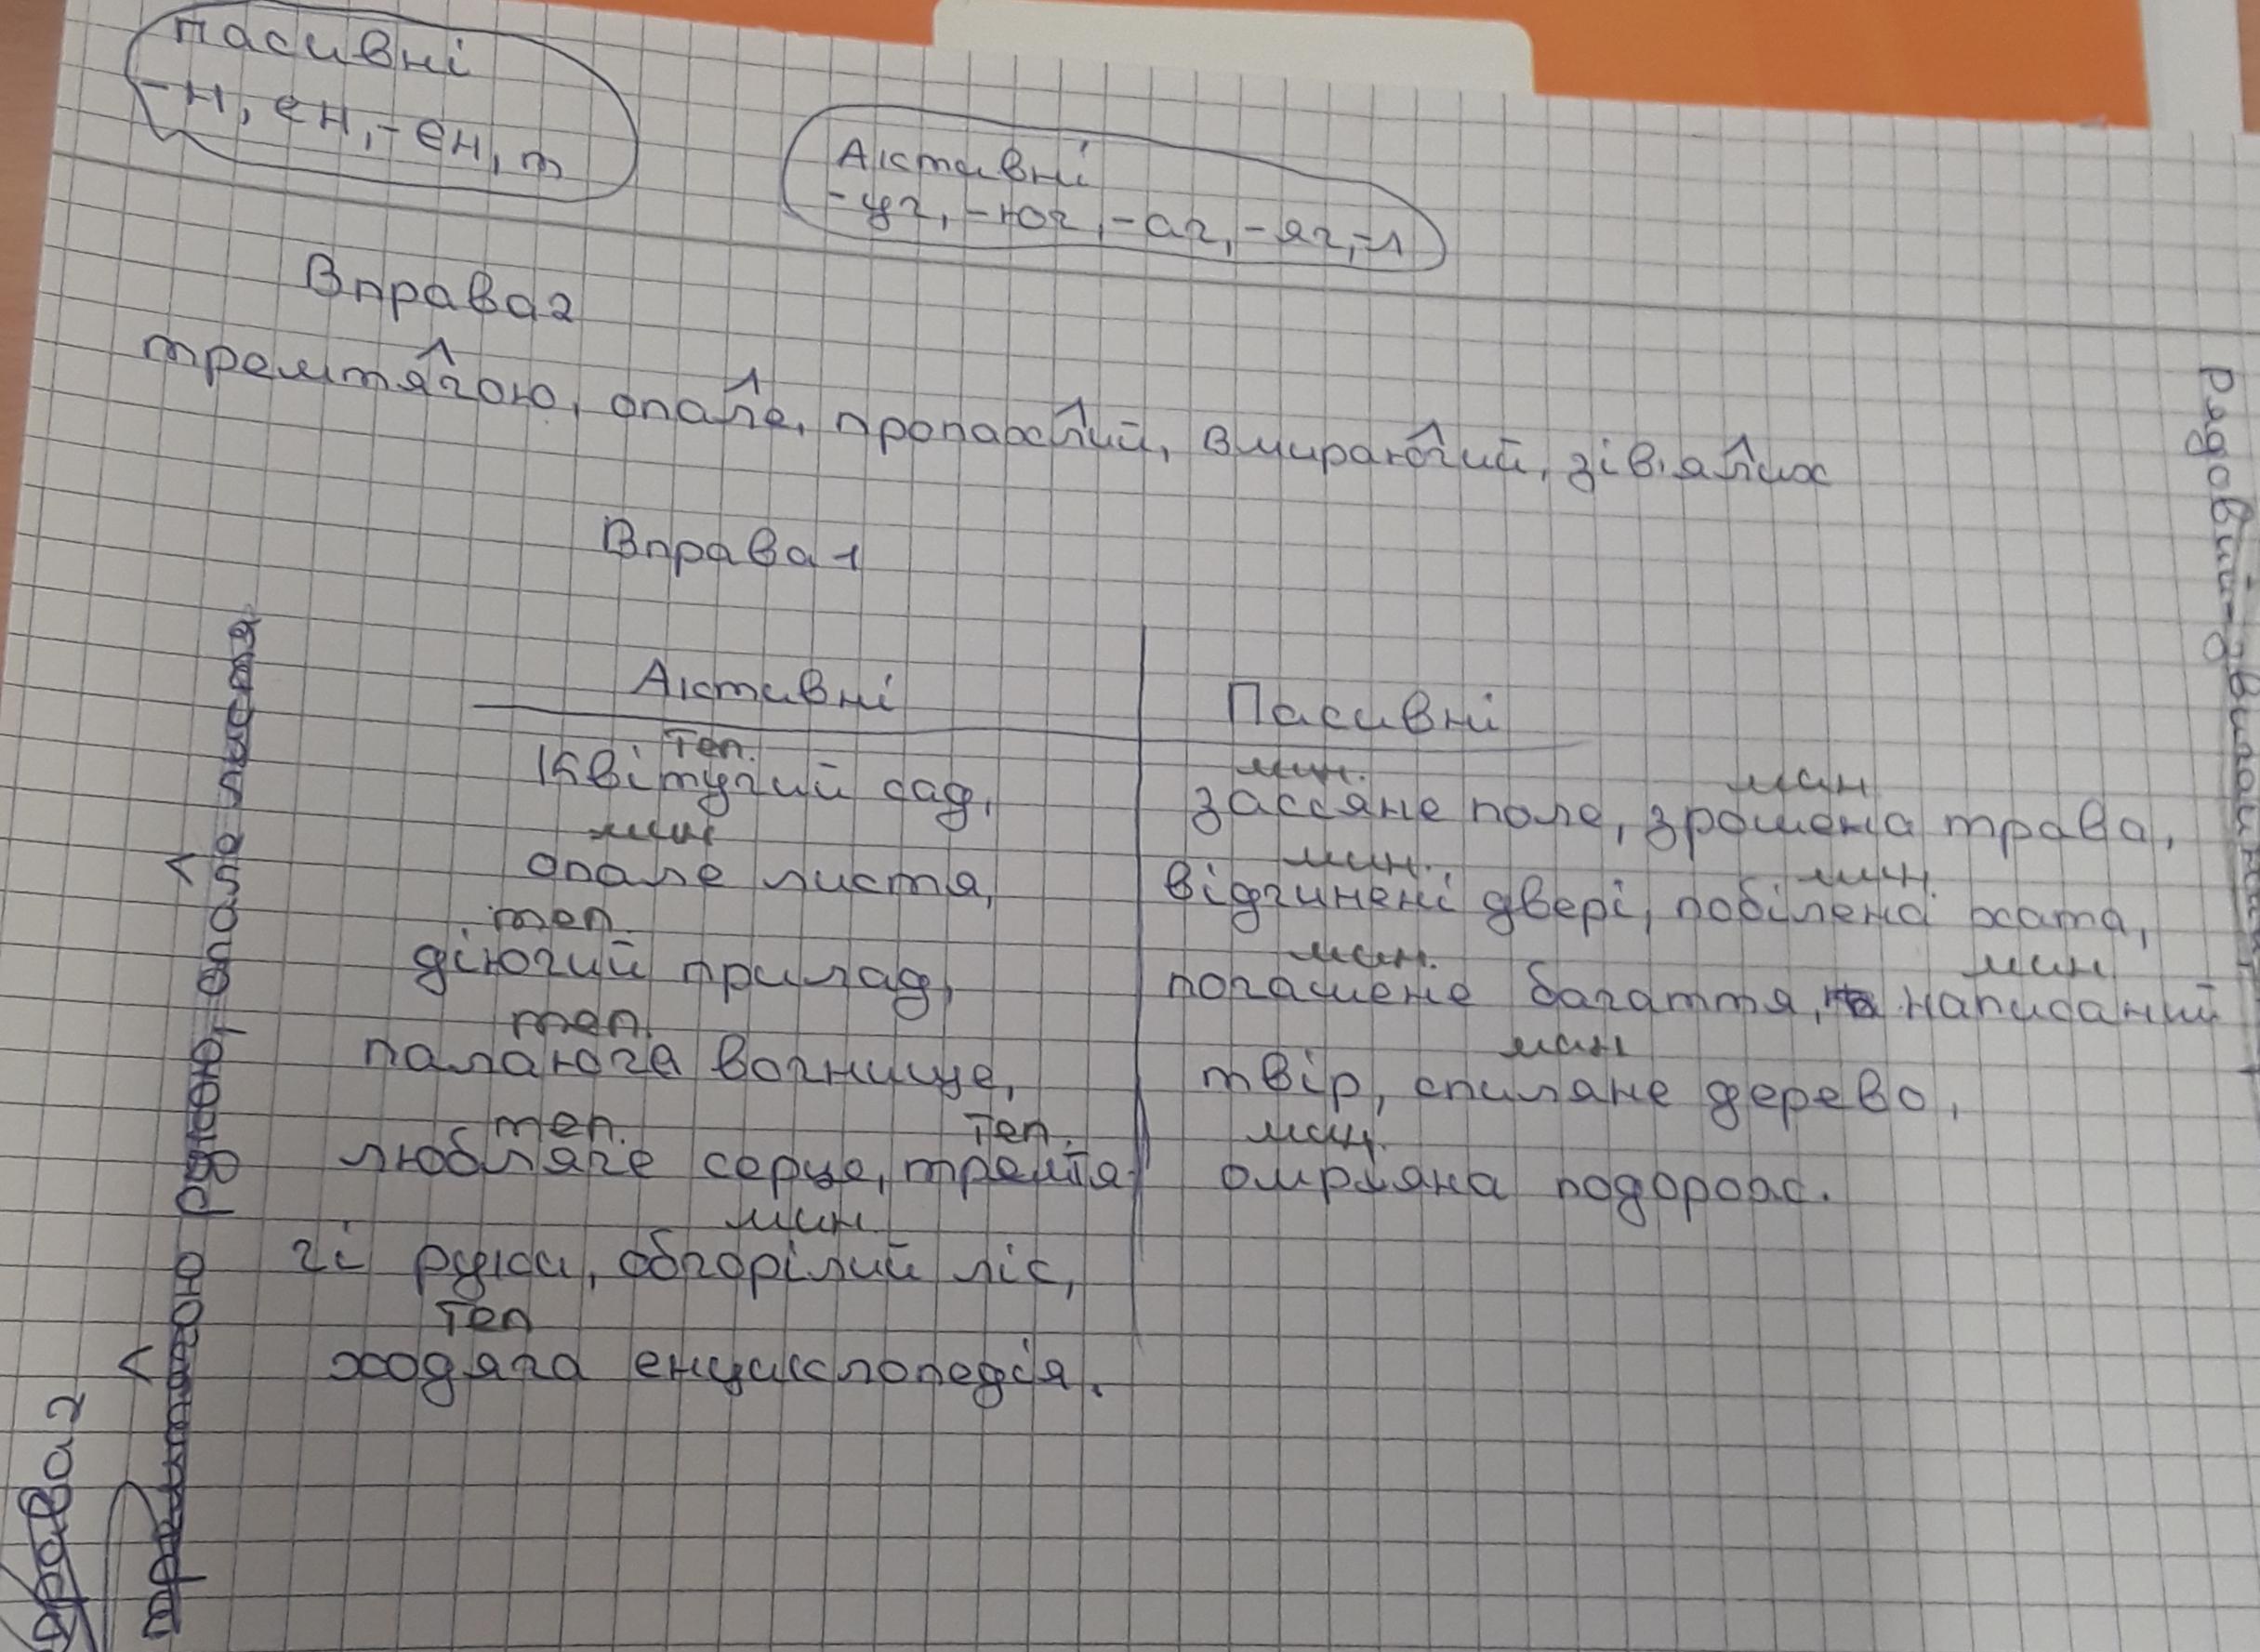 пасивні
-н, ен, -ен, т
Активні
-уч, -юч, -ач, -яч, -л
Вправа 2
тремтячою, опале, пропахлий, вмираючий, зів'ялих
Вправа 1
Активні
Пасивні
теп.
Квітучий сад,
мин
опале листя,
теп.
діючий прилад,
теп.
палаюча вогнище,
теп. теп.
любляче серце, тремтя-
мин
чі руки, обгорілий ліс,
теп
ходяча енциклопедія.
мин. мин
засіяне поле, зрошена трава,
мин. мин.
відчинені двері, побілена хата,
мин. мин
погашене багаття, написаний
мин
твір, спиляне дерево,
мин.
омріяна подорож.
рукою, опале листя
Вправа 2